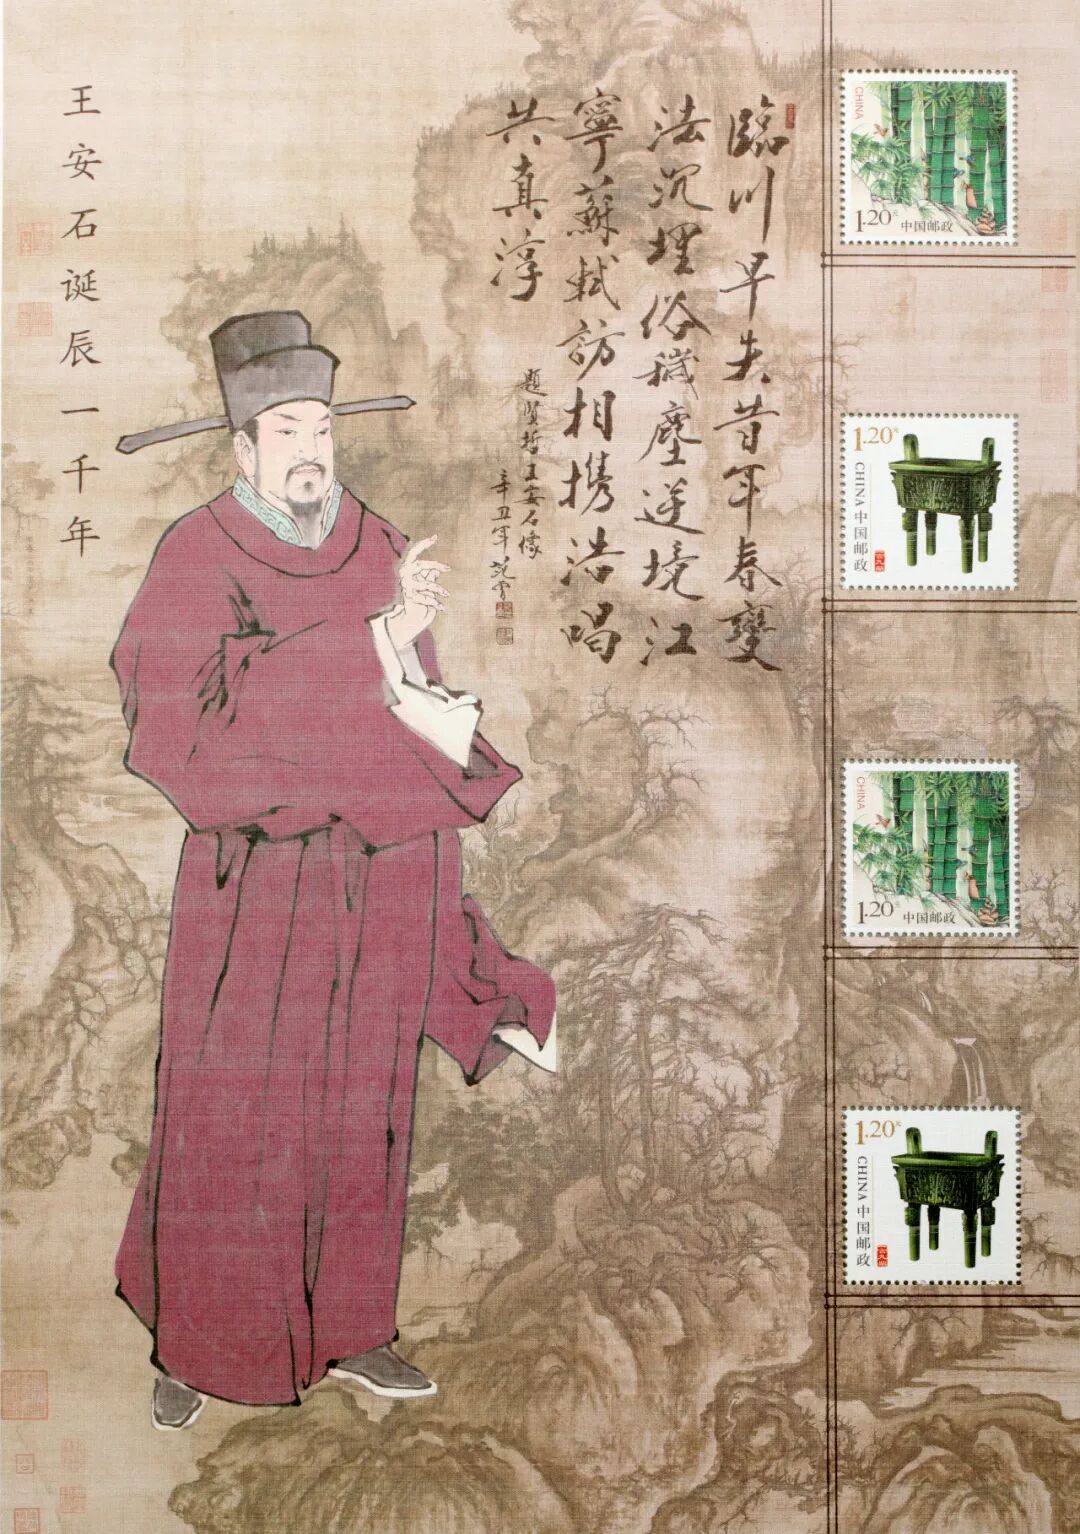 王安石诞辰一千年
臨川早失昔年春變
法沉埋俗穢塵逆境江
寧蘇軾訪相携浩唱
共真淳
題賢哲王安石像
辛丑年 范曾
CHINA
1.20元 中国邮政
1.20元
CHINA中国邮政
CHINA
1.20元 中国邮政
1.20元
CHINA中国邮政